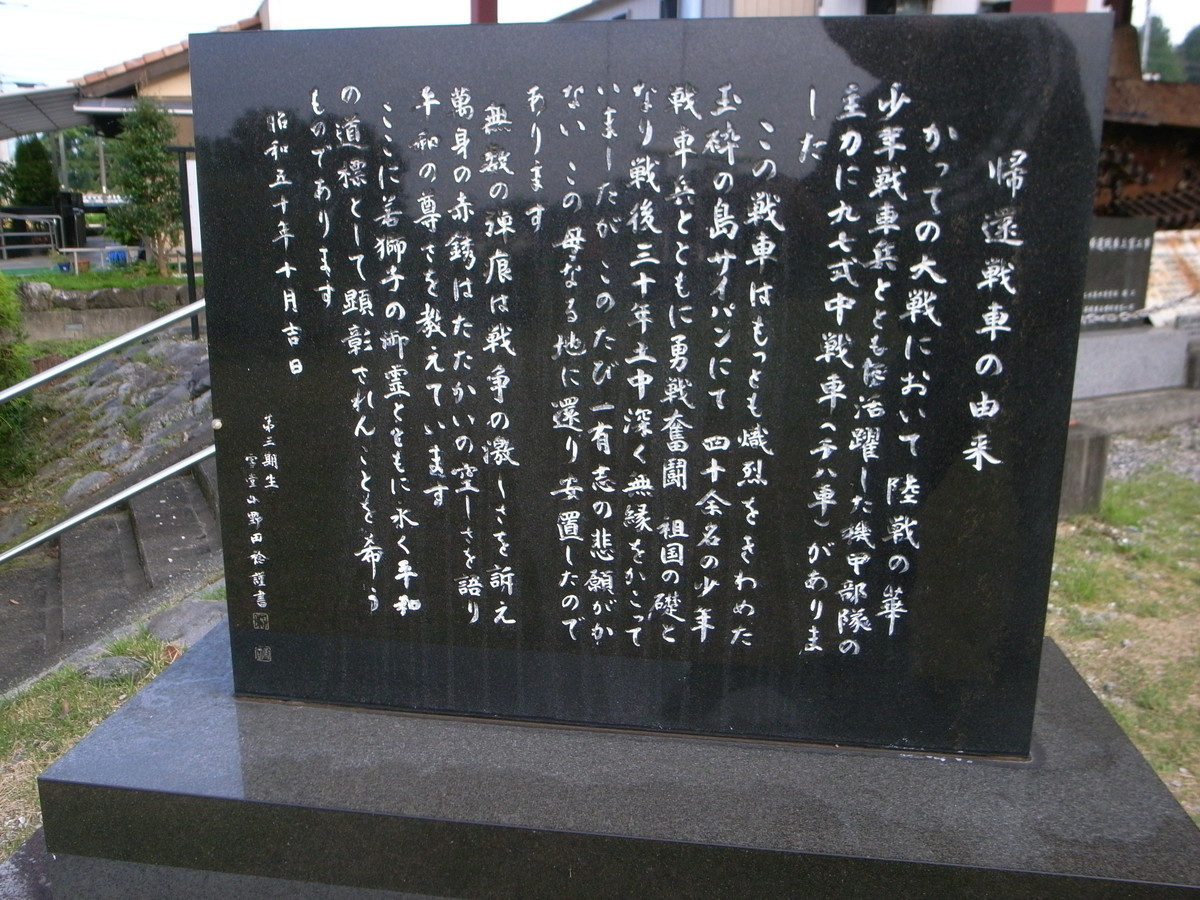 帰還戦車の由来
かつての大戦において 陸戦の華
少年戦車兵とともに活躍した機甲部隊の
主力に九七式中戦車(チハ車)がありま
した
この戦車はもっとも熾烈をきわめた
玉砕の島サイパンにて 四十余名の少年
戦車兵とともに勇戦奮闘 祖国の礎と
なり戦後三十年土中深く無縁をかこって
いましたが このたび 一有志の悲願がか
ない この母なる地に還り安置したので
あります
無数の弾痕は戦争の激しさを訴え
萬身の赤錆はたたかいの空しさを語り
平和の尊さを教えています
ここに若獅子の御霊とともに永く平和
の道標として顕彰されんことを希う
ものであります
昭和五十年十月吉日
第三期生
野田 謹書